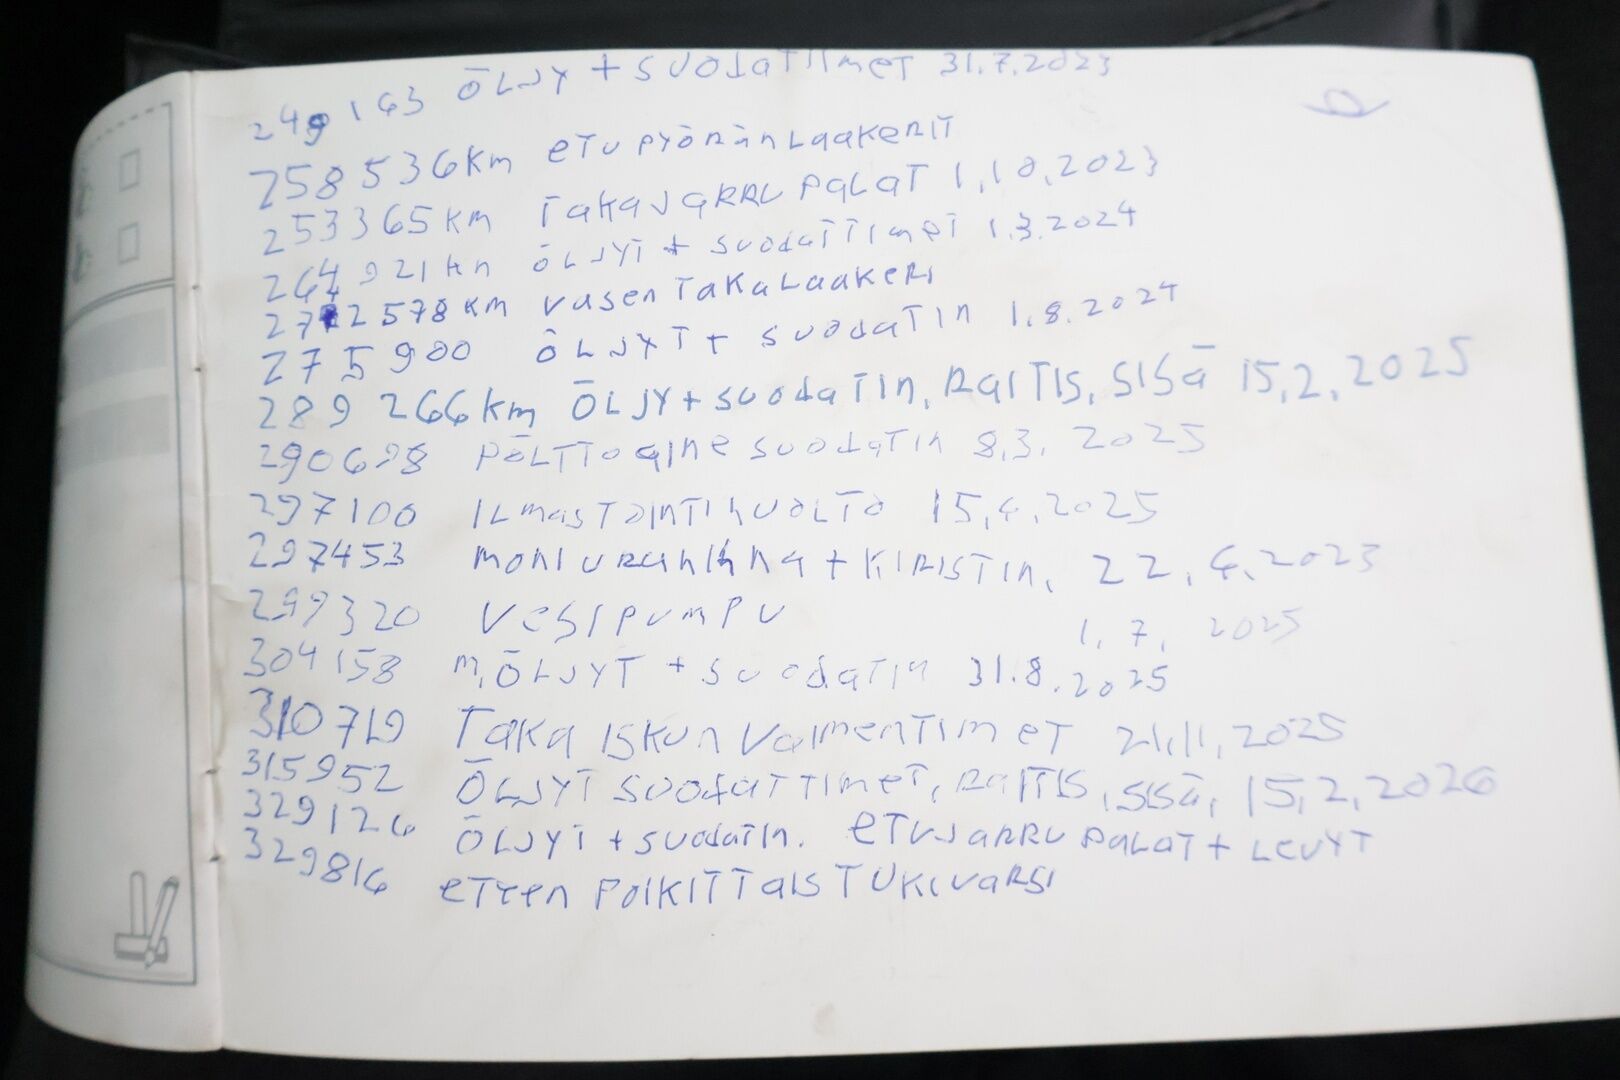 249 163 ÖLJY + SUODATTIMET 31.7.2023
258 536 km ETUPYÖRÄN LAAKERIT
253 365 km TAKAJARRU PALAT 1.10.2023
264 921 km ÖLJYT + SUODATTIMET 1.3.2024
272 578 km VASEN TAKALAAKERI
275 900 ÖLJYT + SUODATIN 1.8.2024
289 266 km ÖLJY + SUODATIN, RAITIS, SISÄ 15.2.2025
290698 PÖLTTOAINE SUODATIN 8.3.2025
297100 ILMASTOINTIHUOLTO 15.4.2025
297453 MONIURAHIHNA + KIRISTIN, 22.4.2023
299320 VESIPUMPU 1.7.2025
304158 M.ÖLJYT + SUODATIN 31.8.2025
310719 TAKA ISKUNVAIMENTIMET 21.11.2025
315952 ÖLJYT SUODATTIMET, RAITIS, SISÄ, 15.2.2026
329126 ÖLJYT + SUODATIN. ETUJARRU PALAT + LEVYT
329816 ETEEN POIKITTAISTUKIVARSI